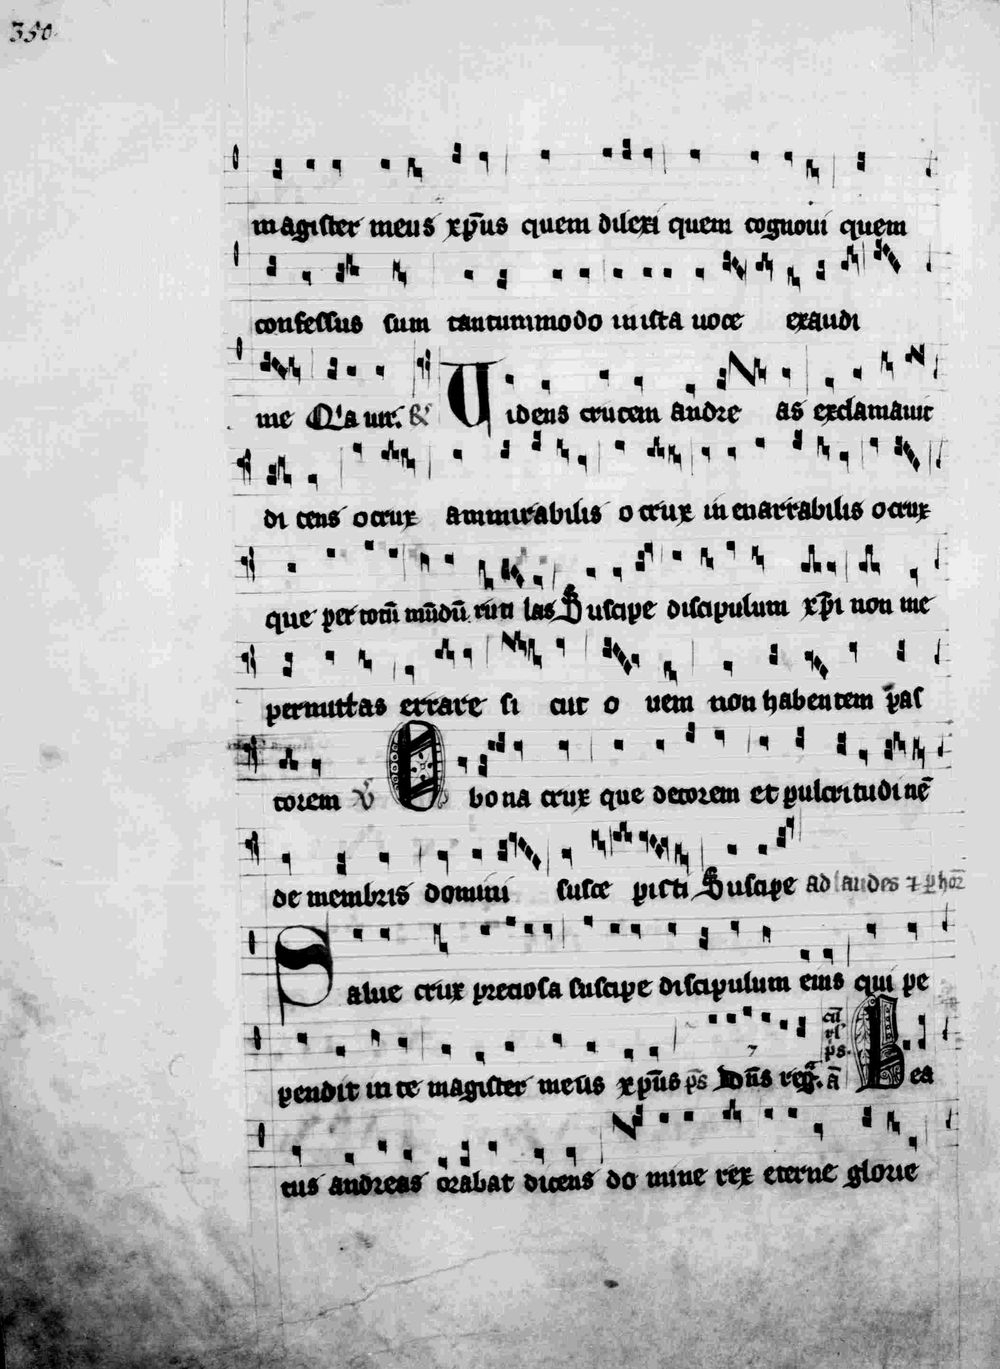 350
magister meus xp̄us quem dilexi quem cognoui quem
confessus sum tantummodo in ista uoce exaudi
me Q'a uir. & Uidens crucem andreas exclamauit
dicens o crux ammirabilis o crux inenarrabilis o crux
que per totū mūdū rutilas Suscipe discipulum xp̄i non me
permittas errare sicut ouem non habentem pas
torem V̄ O bona crux que decorem et pulcritudinē
de membris domini suscepisti Suscipe ad laudes ⁊ ꝑ hor̄
Salue crux preciosa suscipe discipulum eius qui pe
pendit in te magister meus xp̄us ps̄ Dn̄s reg. ā Bea
tus andreas orabat dicens domine rex eterne glorie